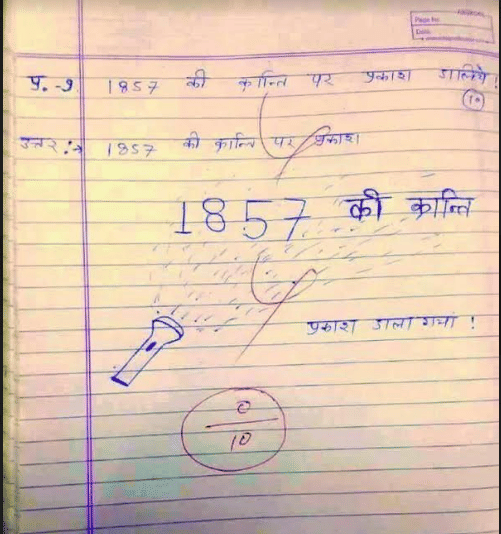 Page No:
Date:
प्र.-१. 1857 की क्रान्ति पर प्रकाश डालिये!
10
उत्तर:→ 1857 की क्रान्ति पर प्रकाश
1857 की क्रान्ति
प्रकाश डाला गया!
0
10